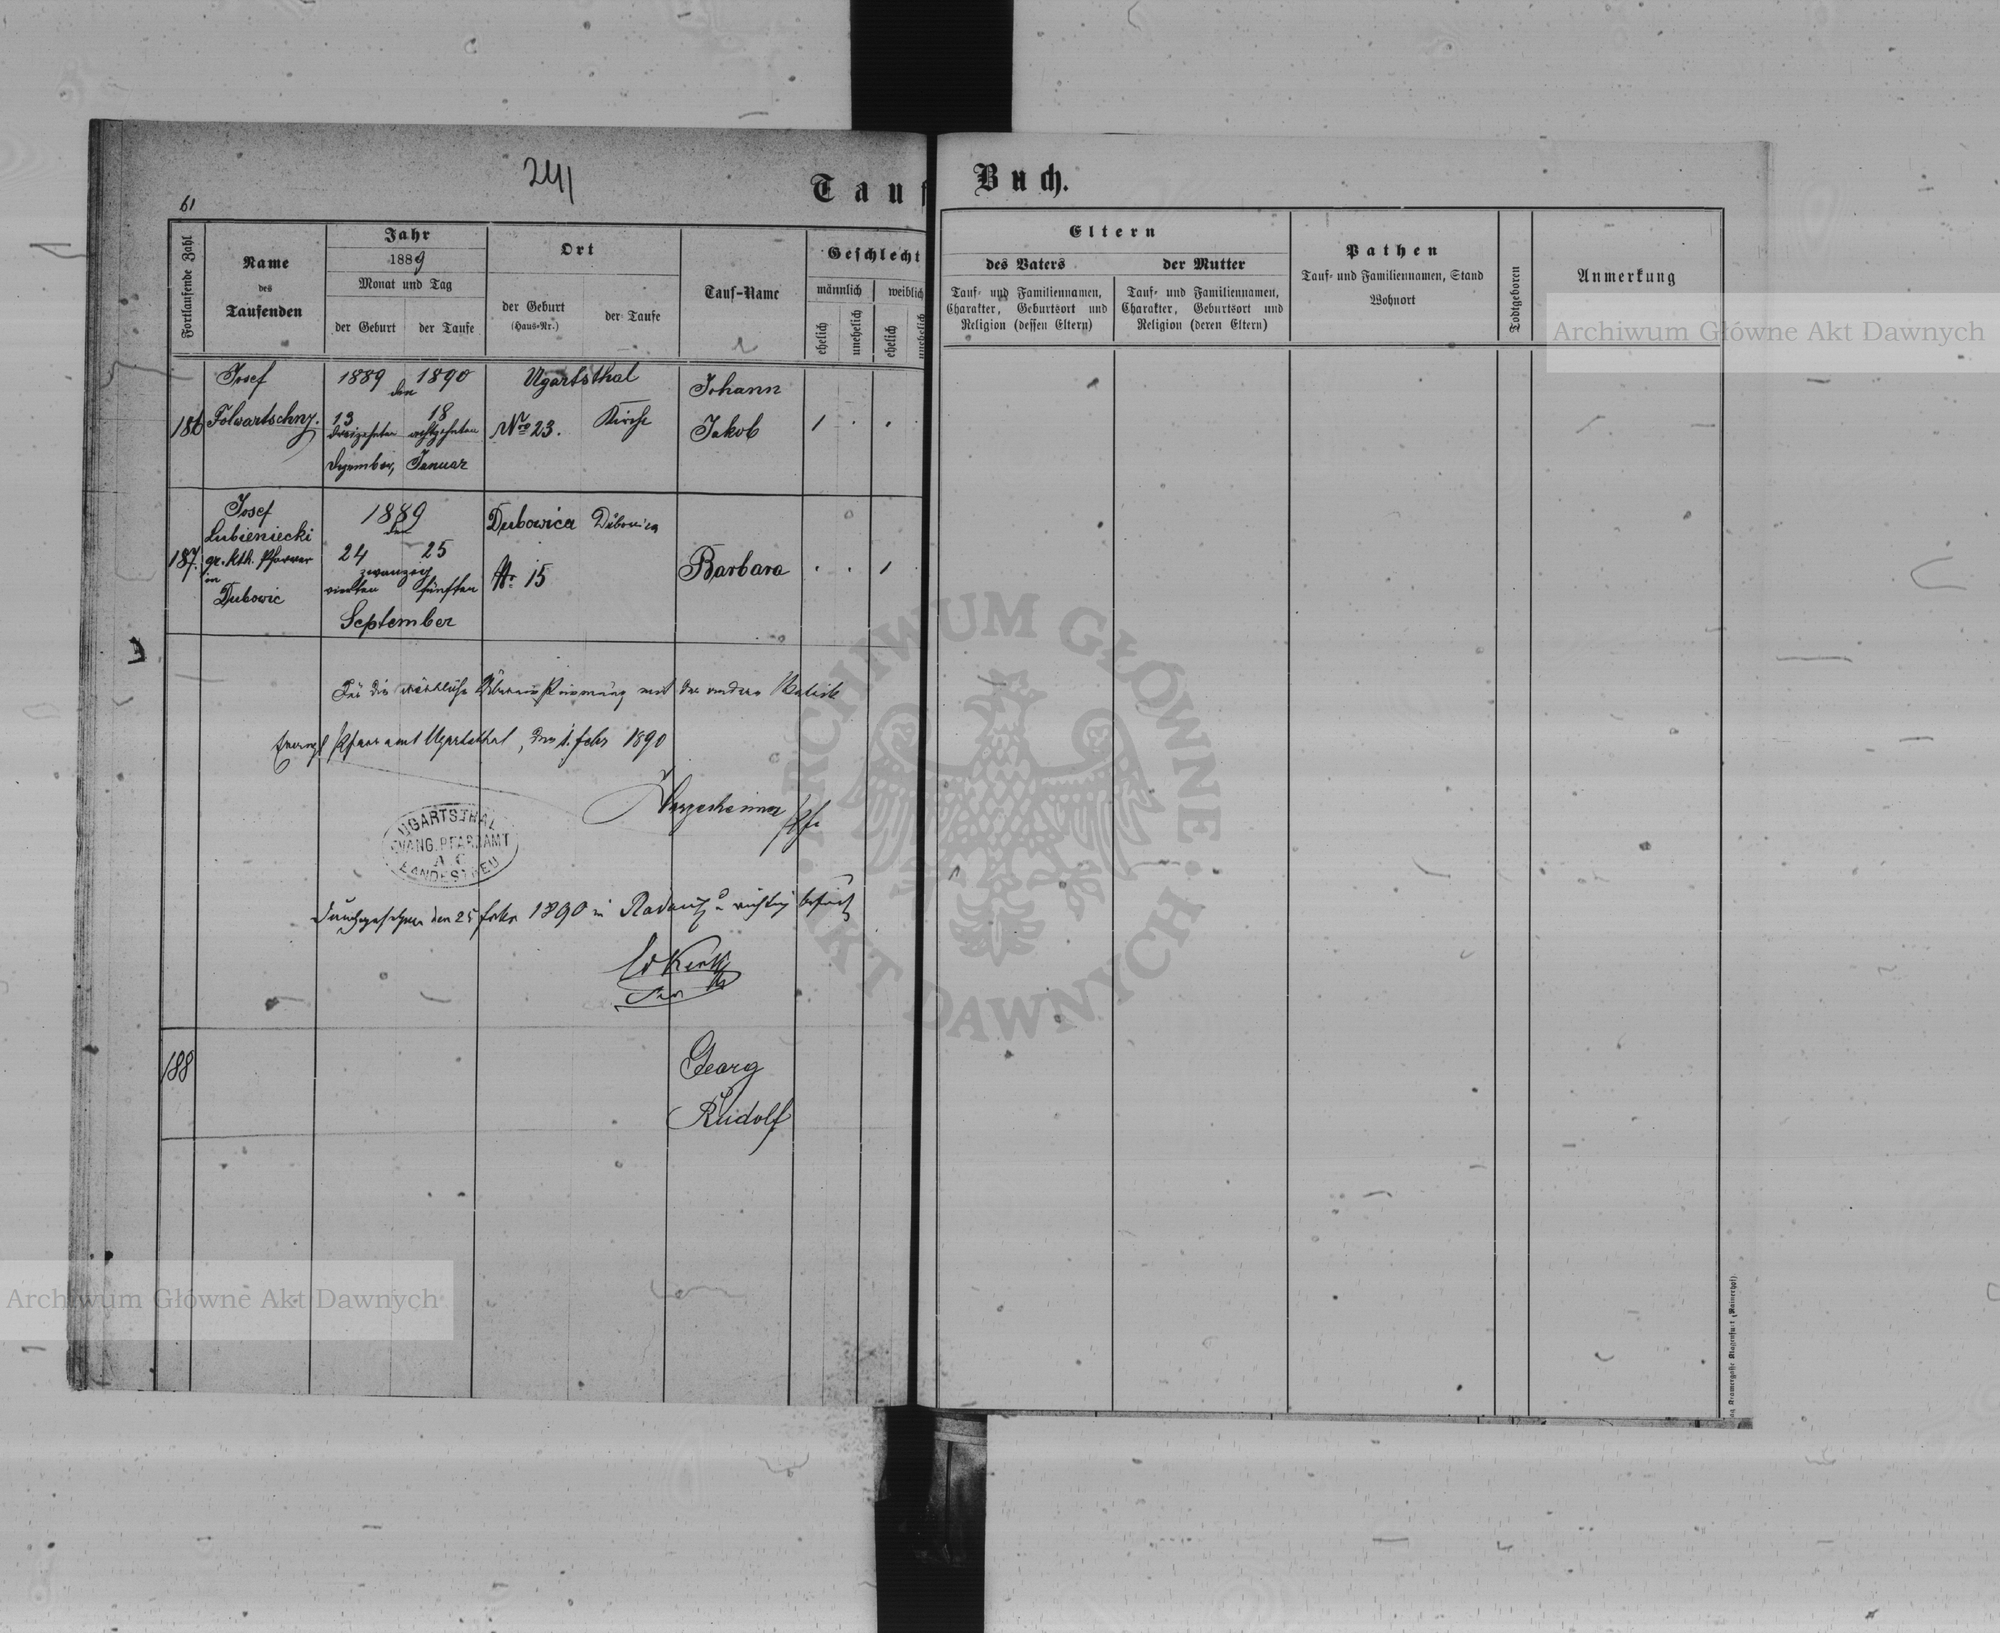 241
61
Tauf
Buch.
Fortlaufende Zahl
Name
des
Taufenden
Jahr
1889
Monat und Tag
der Geburt
der Taufe
Ort
der Geburt
(Haus-Nr.)
der Taufe
Tauf-Name
Geschlecht
männlich
weiblich
ehelich
unehelich
ehelich
unehelich
Eltern
des Vaters
der Mutter
Tauf- und Familiennamen,
Charakter, Geburtsort und
Religion (dessen Eltern)
Tauf- und Familiennamen,
Charakter, Geburtsort und
Religion (deren Eltern)
Pathen
Tauf- und Familiennamen, Stand
Wohnort
Todtgeboren
Anmerkung
186
Josef
Folwartschny.
1889 den 1890
13 18
dreizehnten achtzehnten
Dezember, Januar
Ugartsthal
Nro 23. Kirche
Johann
Jakob
187.
Josef
Lubieniecki
gr. kth. Pfarrer
in
Dubowic
1889
den
24 25
zwanzig
vierten fünften
September
Dubowica Dubowica
Nr. 15
Barbara
Für die wörtliche Übereinstimmung mit der andern Matrik
Evangl Pfarramt Ugartsthal, den 1. febr 1890
UGARTSTHAL
EVANG. PFARRAMT
A. C.
LANDESTREU
Durchgesehen den 25 febr 1890 in Radautz u richtig
188
Georg
Rudolf
Archiwum Główne Akt Dawnych
Archiwum Główne Akt Dawnych
ARCHIWUM GŁÓWNE AKT DAWNYCH